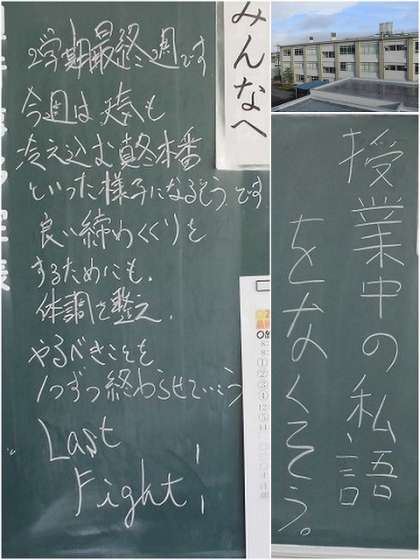 2学期最終週です
今週は天気も
冷え込む真冬本番
といった様子になるそうです
良い締めくくりを
するためにも、
体調を整え、
やるべきことを
1つずつ終わらせていこう
Last
Fight!
みんなへ
授業中の私語
をなくそう。